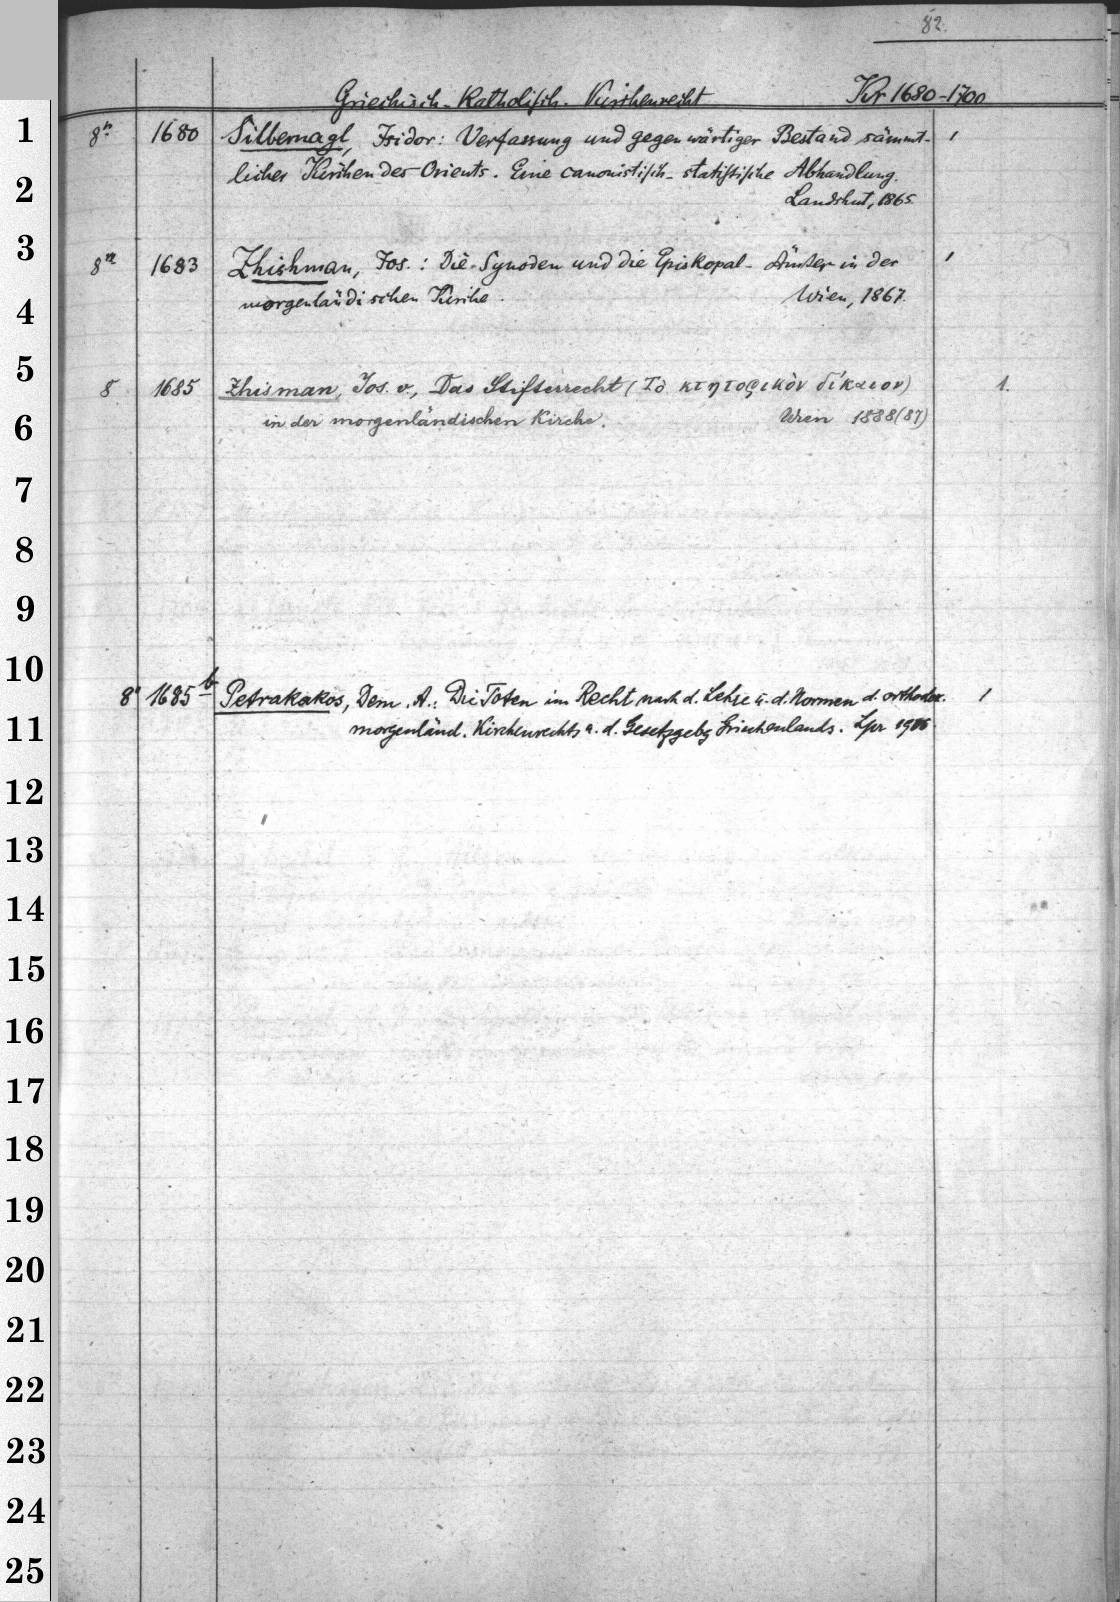 82.
Griechisch-Katholisch. Kirchenrecht Kr 1680-1700
1 8° 1680 Silbernagl, Isidor: Verfassung und gegenwärtiger Bestand sämmt- 1
2 licher Kirchen des Orients. Eine canonistisch-statistische Abhandlung.
Landshut, 1865.
3 8° 1683 Zhishman, Jos.: Die Synoden und die Episkopal-Ämter in der 1
4 morgenländischen Kirche. Wien, 1867.
5 8 1685 Zhisman, Jos. v., Das Stifterrecht (Τὸ κτητορικὸν δίκαιον) 1.
6 in der morgenländischen Kirche. Wien 1888(87)
7
8
9
10 8° 1685 b Petrakakos, Dem. A.: Die Toten im Recht nach d. Lehre u. d. Normen d. orthodox. 1
11 morgenländ. Kirchenrechts u. d. Gesetzgebg Griechenlands. Lpz 1905.
12
13
14
15
16
17
18
19
20
21
22
23
24
25